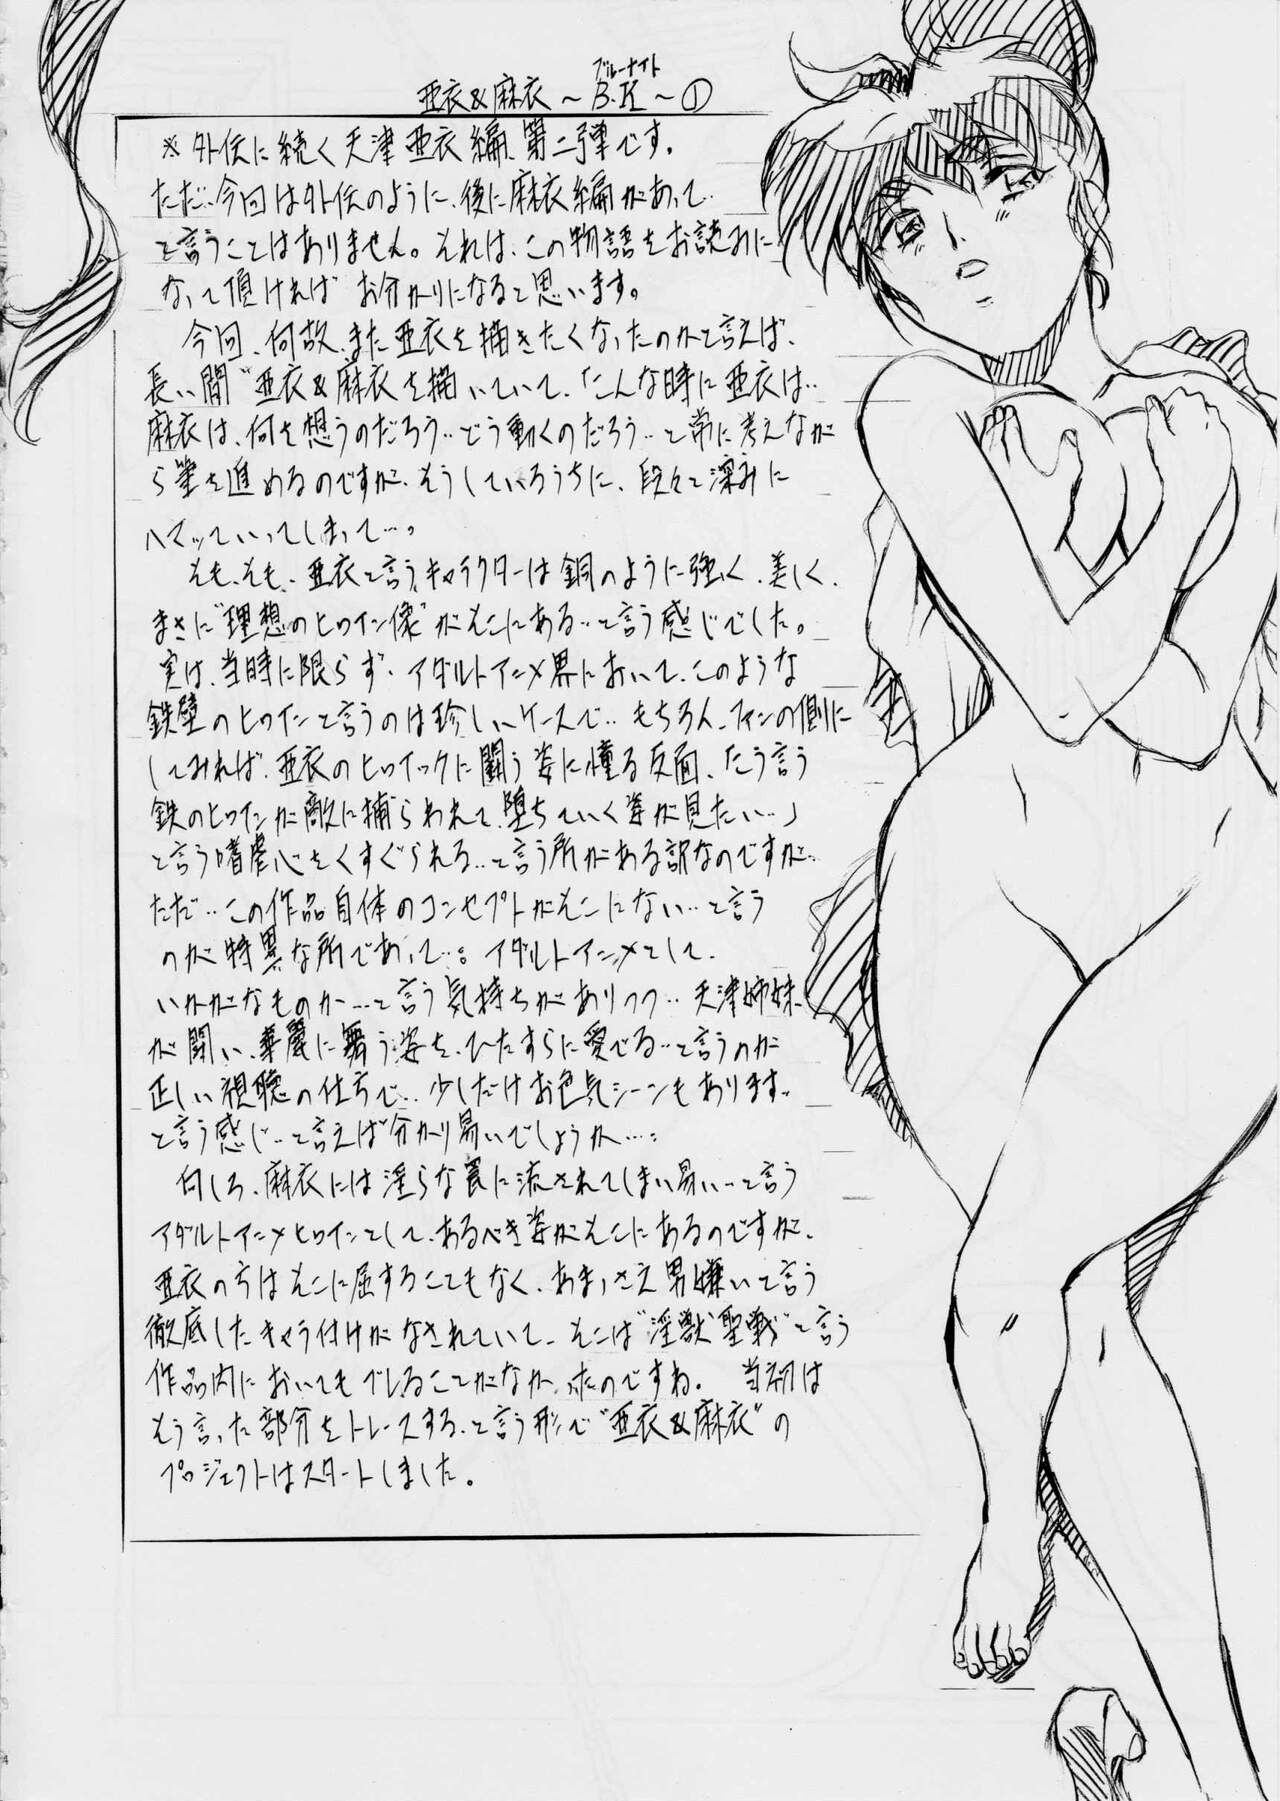 ブルーナイト
亜衣&麻衣～B.K～①
※外伝に続く天津亜衣編、第二弾です。
ただ‥今回は外伝のように、後に麻衣編があって‥
と言うことはありません。それは、この物語をお読みに
なって頂ければ お分かりになると思います。
今回、何故、また亜衣を描きたくなったのかと言えば、
長い間"亜衣&麻衣を描いていて、こんな時に亜衣は‥
麻衣は、何を想うのだろう‥どう動くのだろう‥と常に考えなが
ら筆を進めるのですが、そうしているうちに、段々と深みに
ハマッていってしまって…。
そも、そも、亜衣と言うキャラクターは鋼のように強く、美しく、
まさに"理想のヒロイン像"がそこにある‥と言う感じでした。
実は、当時に限らず‥アダルトアニメ界において、このような
鉄壁のヒロインと言うのは珍しいケースで‥もちろん、ファンの側に
してみれば、亜衣のヒロイックに闘う姿に憧る反面、こう言う
鉄のヒロインが敵に捕らわれて、堕ちていく姿が見たい‥」
と言う嗜虐心をくすぐられる‥と言う所がある訳なのですが‥
ただ‥この作品自体のコンセプトがそこにない‥と言う
のが特異な所であって…。アダルトアニメとして、
いかがなものか…と言う気持ちがありつつ‥天津姉妹
が闘い、華麗に舞う姿を、ひたすらに愛でる‥と言うのが
正しい視聴の仕方で‥少しだけお色気シーンもあります‥
と言う感じ‥と言えば分かり易いでしょうか…。
何しろ、麻衣には淫らな罠に流されてしまい易い‥と言う
アダルトアニメヒロインとして、あるべき姿がそこにあるのですが、
亜衣の方はそこに屈することもなく、あまっさえ男嫌いと言う
徹底したキャラ付けがなされていて、そこは"淫獣聖戦"と言う
作品内においてもブレることがなかったのですね。 当初は
そう言った部分をトレースする、と言う形で"亜衣&麻衣"の
プロジェクトはスタートしました。